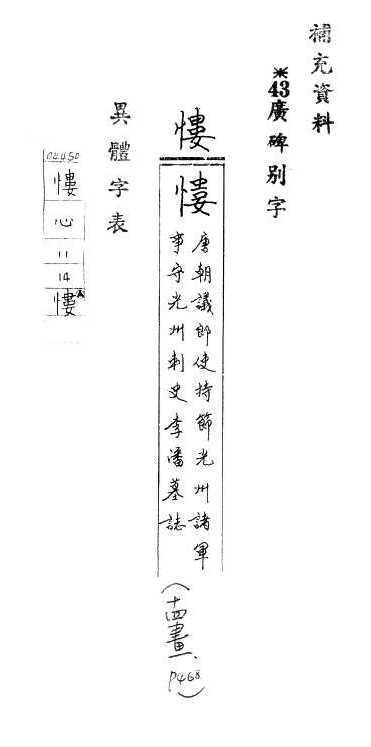 補充資料
※43廣碑别字
慺
慺
唐朝議郎使持節光州諸軍
事守光州刺史李潘墓誌
(十四畫、P468)
異體字表
04450
慺
心
11
14
慺